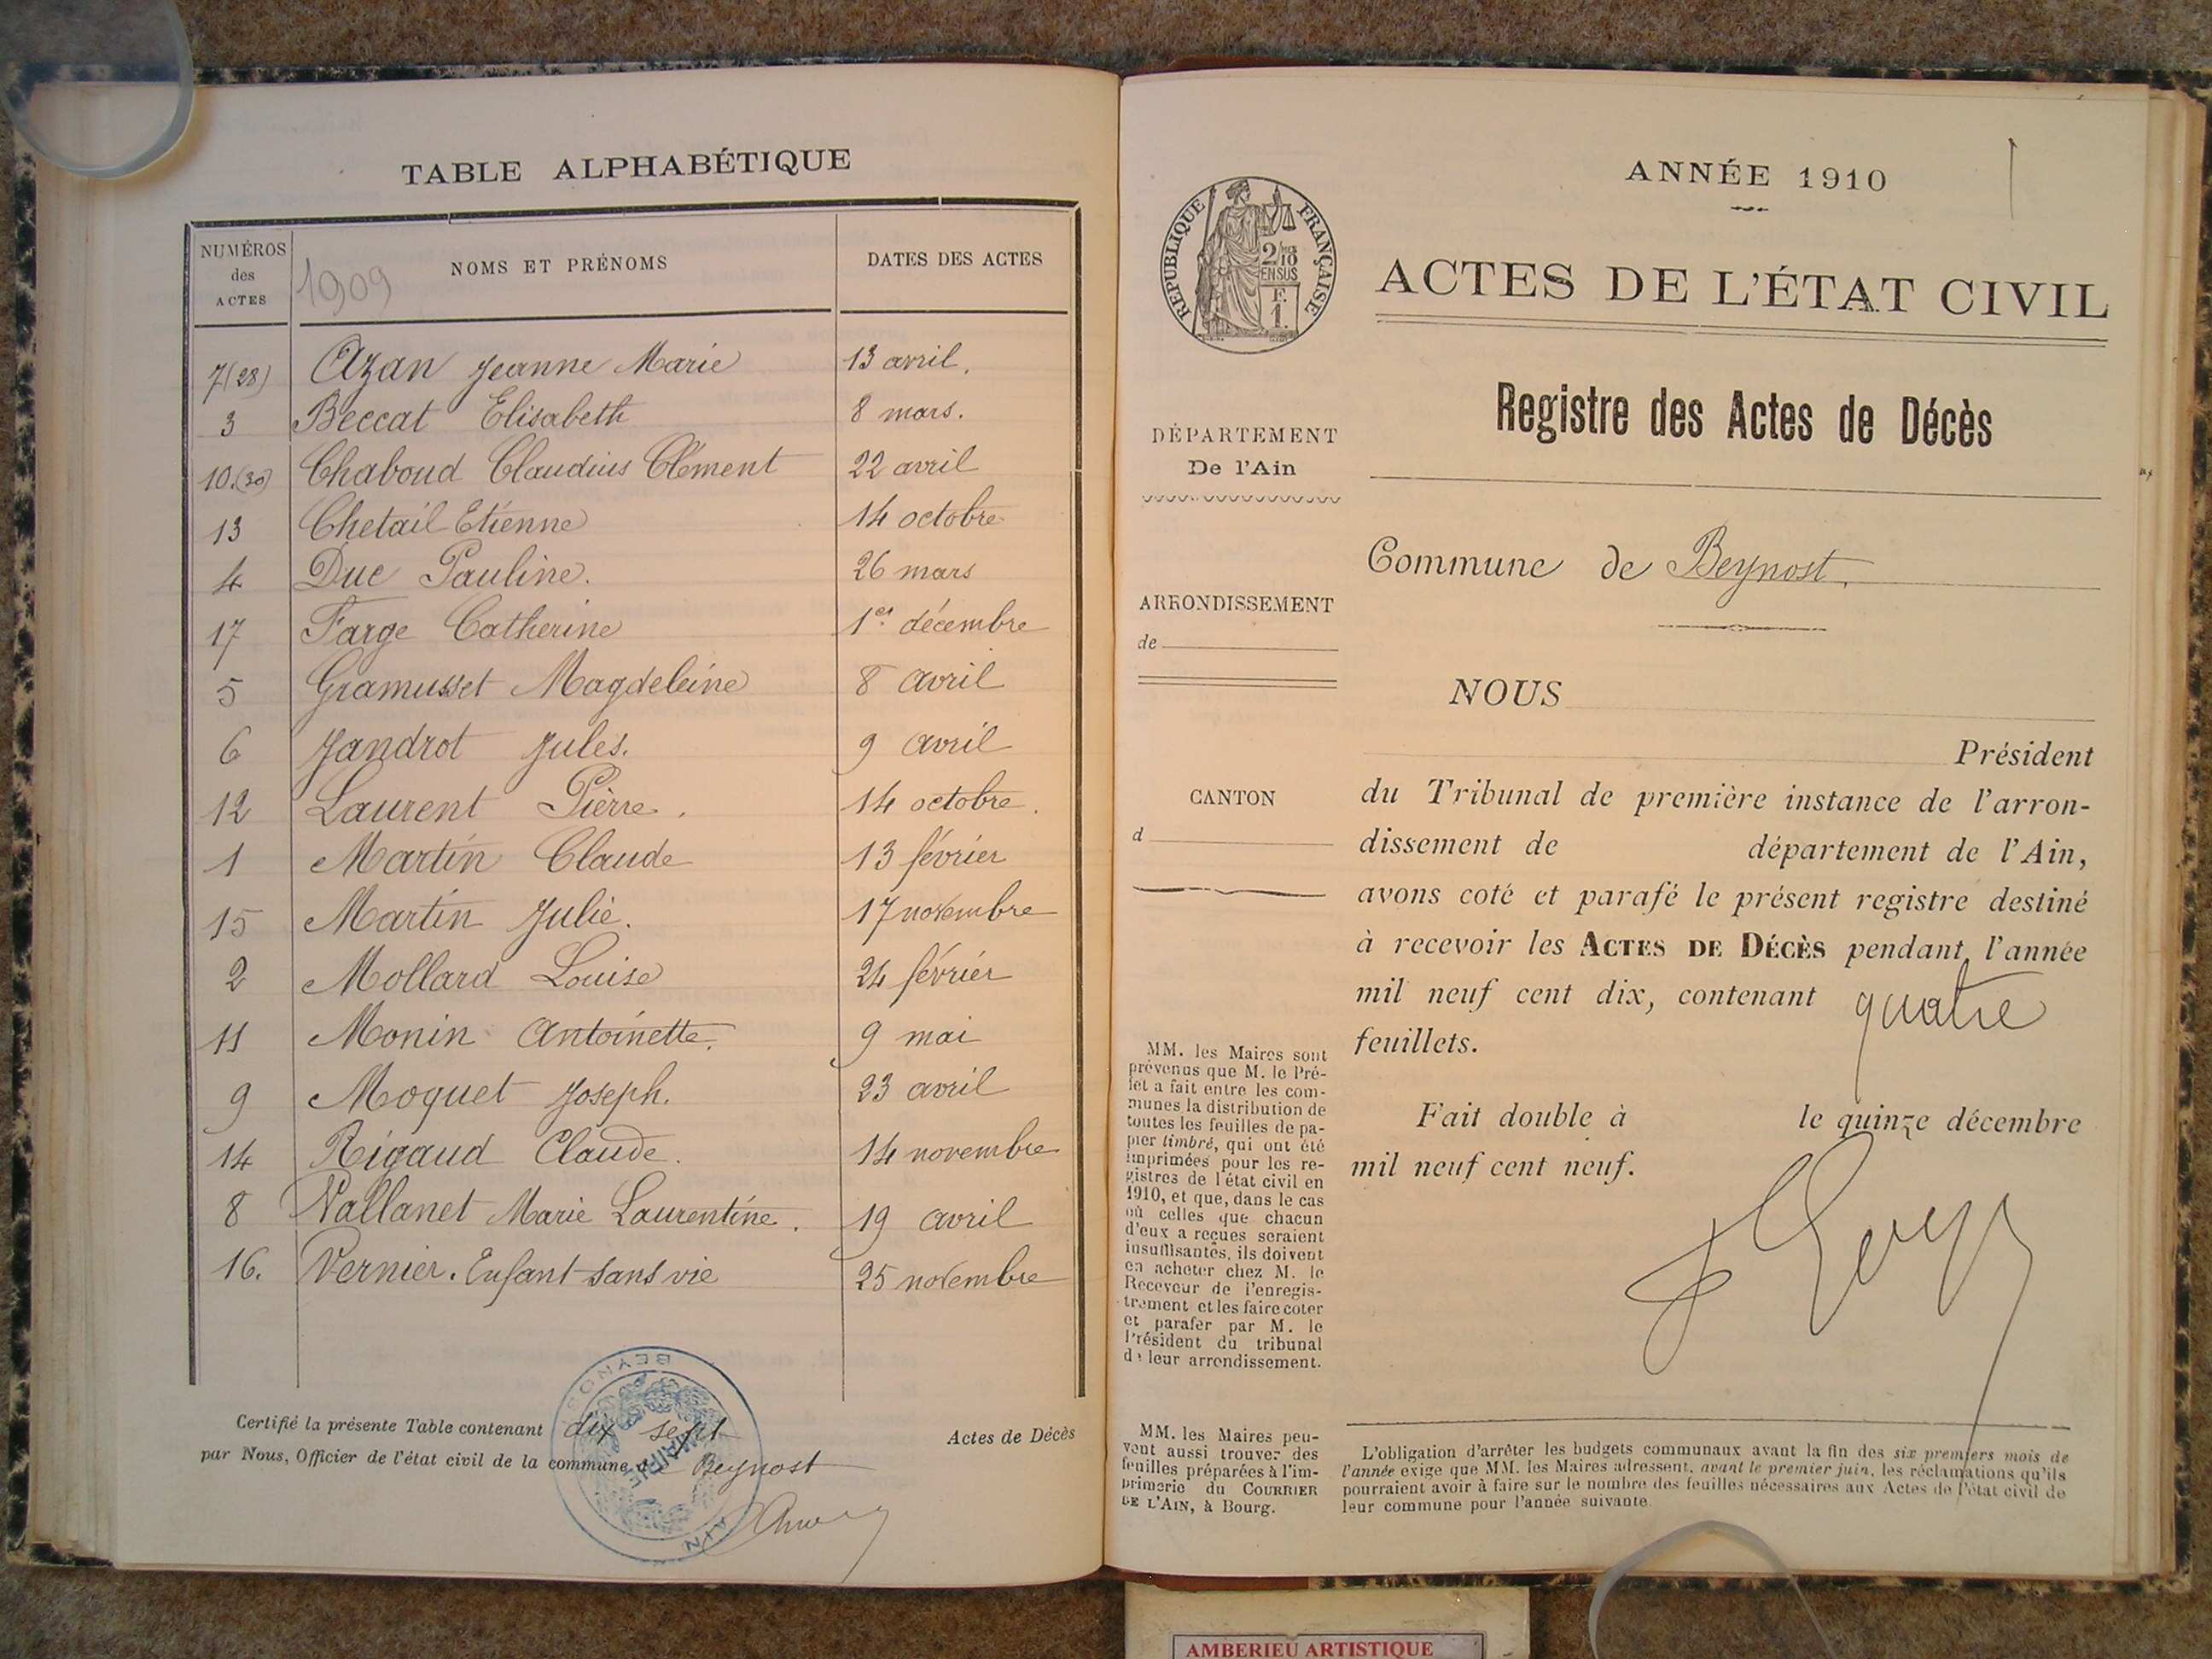 TABLE ALPHABÉTIQUE
NUMÉROS des ACTES
1909
NOMS ET PRÉNOMS
DATES DES ACTES
7(28) Azan Jeanne Marie 13 avril.
3 Beccat Elisabeth 8 mars.
10.(30) Chaboud Claudius Clément 22 avril
13 Chetail Etienne 14 octobre
4 Duc Pauline. 26 mars
17 Farge Catherine 1er décembre
5 Gramusset Magdeleine 8 avril
6 Jandrot Jules. 9 avril
12 Laurent Pierre. 14 octobre.
1 Martin Claude 13 février
15 Martin Julie. 17 novembre
2 Mollard Louise 24 février
11 Monin Antoinette. 9 mai
9 Moquet Joseph. 23 avril
14 Rigaud Claude. 14 novembre
8 Vallanet Marie Laurentine. 19 avril
16. Vernier. Enfant sans vie 25 novembre
Certifié la présente Table contenant dix sept Actes de Décès
par Nous, Officier de l'état civil de la commune de Beynost
MAIRIE BEYNOST AIN
ANNÉE 1910
RÉPUBLIQUE FRANÇAISE
2/10
EN SUS
F.
1.
ACTES DE L'ÉTAT CIVIL
Registre des Actes de Décès
DÉPARTEMENT
De l'Ain
Commune de Beynost.
ARRONDISSEMENT
de
CANTON
d
NOUS
Président
du Tribunal de première instance de l'arron-
dissement de département de l'Ain,
avons coté et parafé le présent registre destiné
à recevoir les ACTES DE DÉCÈS pendant l'année
mil neuf cent dix, contenant quatre
feuillets.
Fait double à le quinze décembre
mil neuf cent neuf.
MM. les Maires sont
prévenus que M. le Pré-
fet a fait entre les com-
munes la distribution de
toutes les feuilles de pa-
pier timbré, qui ont été
imprimées pour les re-
gistres de l'état civil en
1910, et que, dans le cas
où celles que chacun
d'eux a reçues seraient
insuffisantes, ils doivent
en acheter chez M. le
Receveur de l'enregis-
trement et les faire coter
et parafer par M. le
Président du tribunal
de leur arrondissement.
MM. les Maires peu-
vent aussi trouver des
feuilles préparées à l'im-
primerie du COURRIER
DE L'AIN, à Bourg.
L'obligation d'arrêter les budgets communaux avant la fin des six premiers mois de
l'année exige que MM. les Maires adressent, avant le premier juin, les réclamations qu'ils
pourraient avoir à faire sur le nombre des feuilles nécessaires aux Actes de l'état civil de
leur commune pour l'année suivante.
AMBERIEU ARTISTIQUE